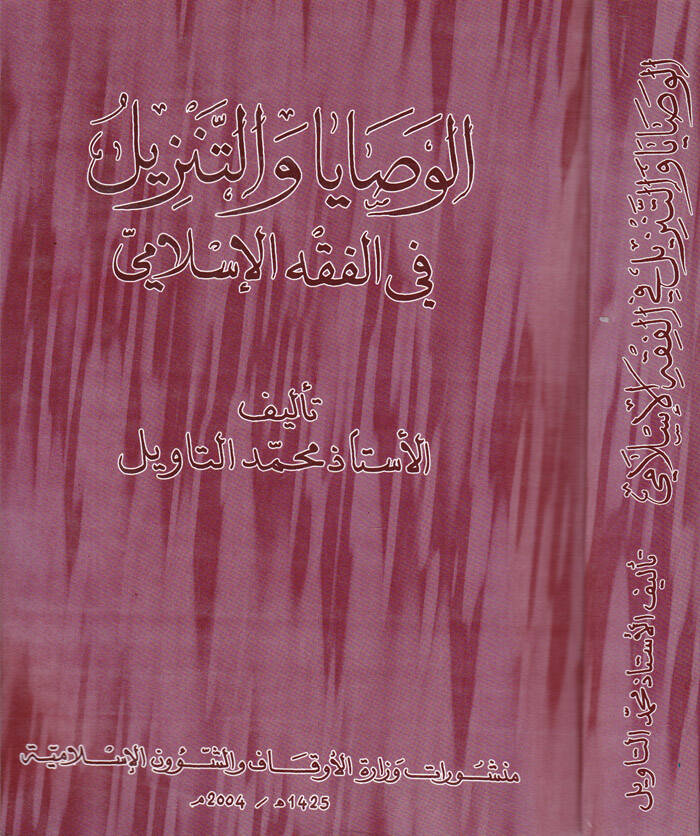 الوَصَايا وَالتَّنزِيلُ
في الفقه الإسلاميّ
تأليف
الأستاذ محمّد التاويل
منشورات وزارة الأوقاف والشّؤون الإسلاميّة
1425هـ / 2004م
الوصايا والتّنزيل في الفقه الإسلاميّ
تأليف الأستاذ محمّد التاويل